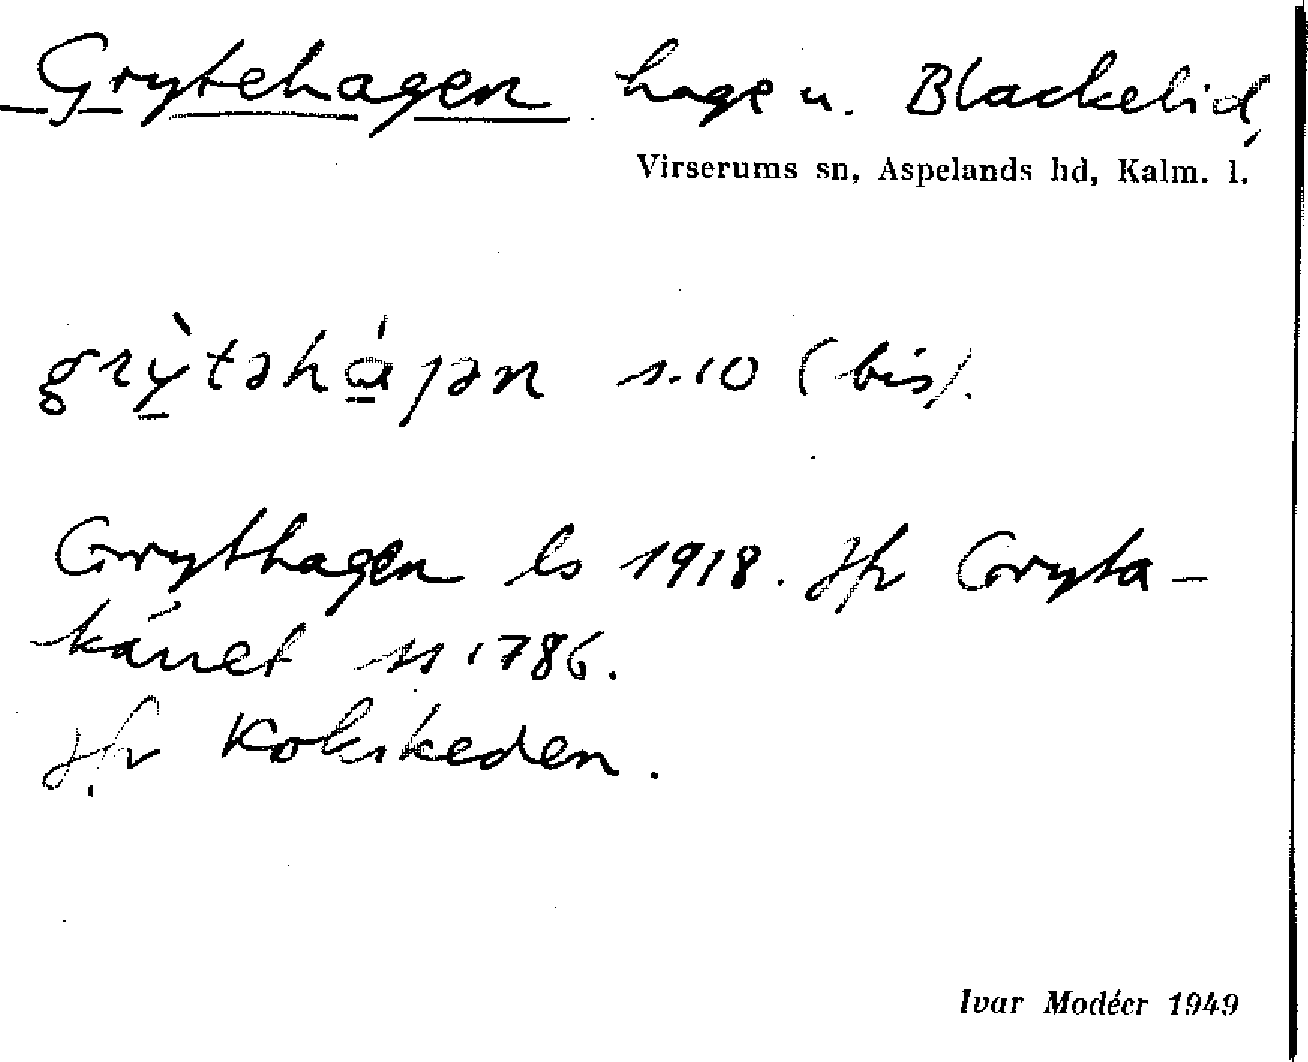 Grytehagen hage u. Blackelid,
Virserums sn, Aspelands hd, Kalm. l.
grỳtəhájən s.10 (bis).
Grythagen ls 1918. Jfr Gryta-
kärret ss 1786.
Jfr Kokskeden.
Ivar Modéer 1949